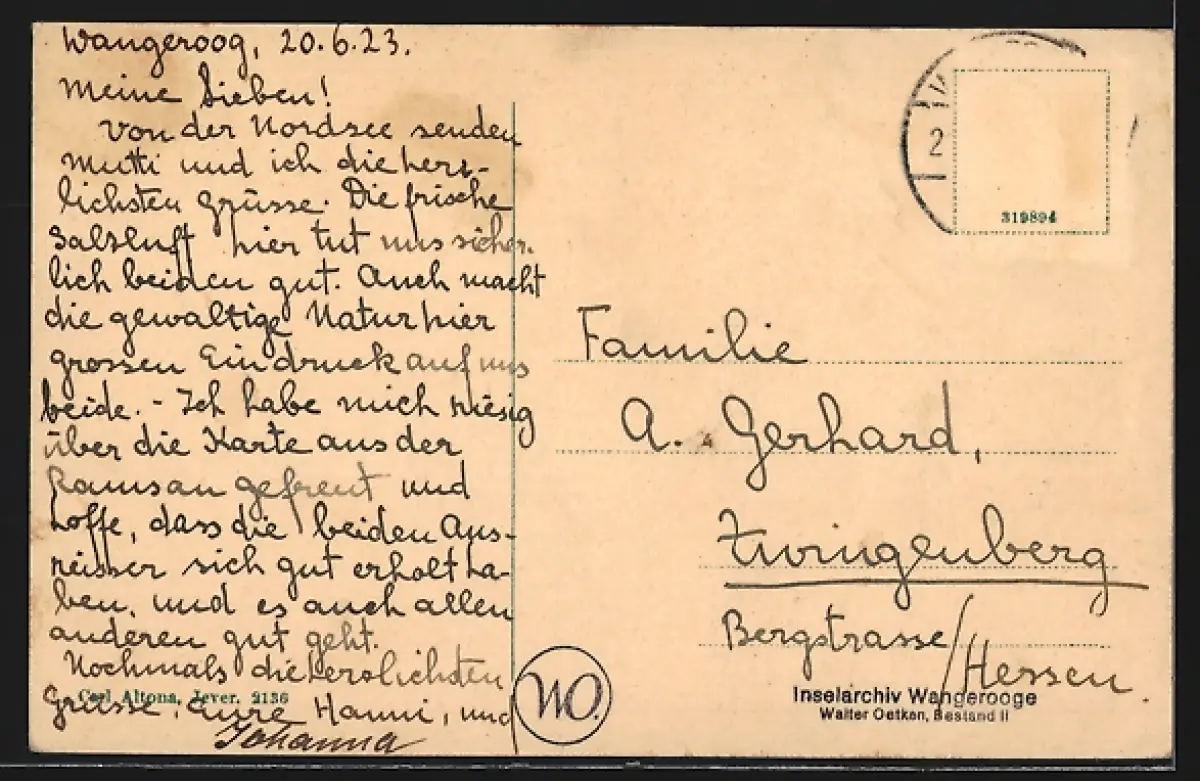 Wangeroog, 20.6.23.
Meine Lieben!
Von der Nordsee senden
Mutti und ich die herz-
lichsten Grüsse. Die frische
Salzluft hier tut uns sicher-
lich beiden gut. Auch macht
die gewaltige Natur hier
grossen Eindruck auf uns
beide. - Ich habe mich riesig
über die Karte aus der
Ramsau gefreut und
hoffe, dass die beiden Aus-
reisser sich gut erholt ha-
ben, und es auch allen
anderen gut geht.
Nochmals die herzlichsten
Grüsse, Eure Hanni, und
Johanna
Carl Altona, Jever. 2136
WO.
2
319894
Familie
A. Gerhard,
Zwingenberg
Bergstrasse/
Hessen.
Inselarchiv Wangerooge
Walter Oetken, Bestand II